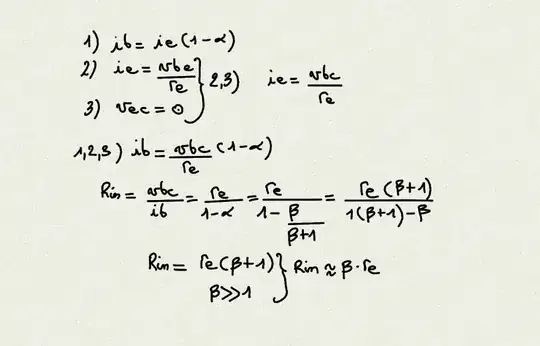 1) ib = ie (1-α)
2) ie = vbe/re } 2,3) ie = vbc/re
3) vec = 0
1,2,3) ib = vbc/re (1-α)
Rin = vbc/ib = re/(1-α) = re/(1 - β/(β+1)) = re(β+1)/(1(β+1)-β)
Rin = re(β+1) } Rin ≈ β·re
β>>1